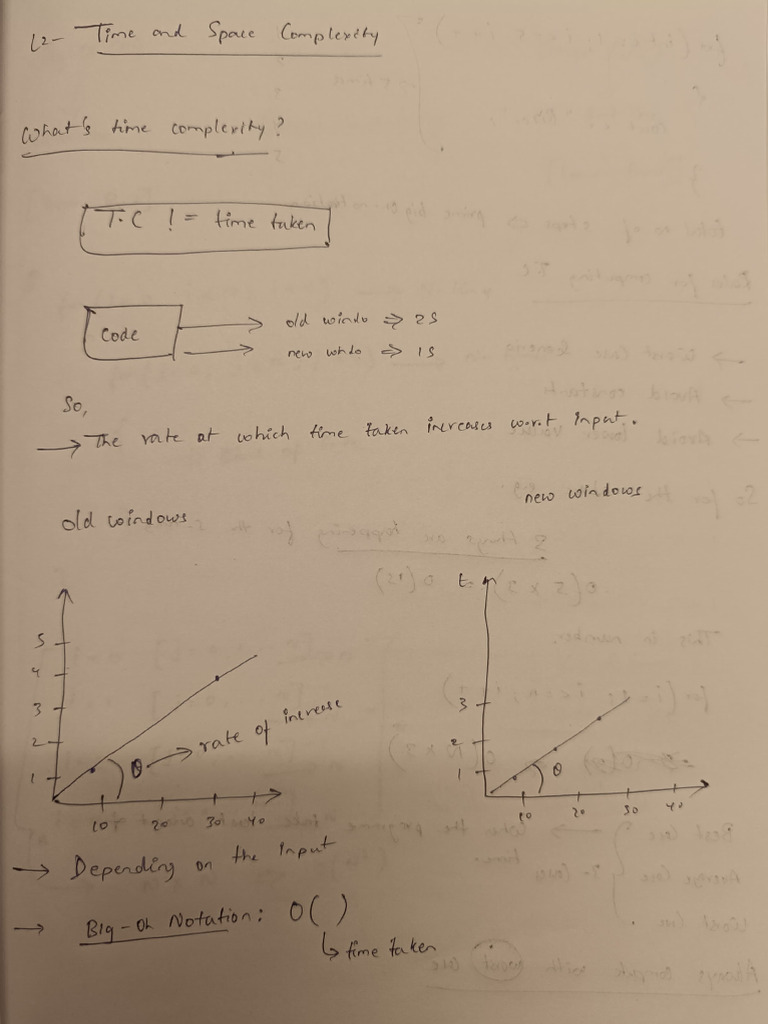 L2- Time and Space Complexity
What's time complexity?
T.C != time taken
Code
old windo => 2s
new windo => 1s
So,
→ The rate at which time taken increases w.r.t Input.
old windows
new windows
5
4
3
2
1
θ → rate of increase
10 20 30 40
t
3
2
1
θ
10 20 30 40
→ Depending on the Input
→ Big-Oh Notation: O( )
↳ time taken